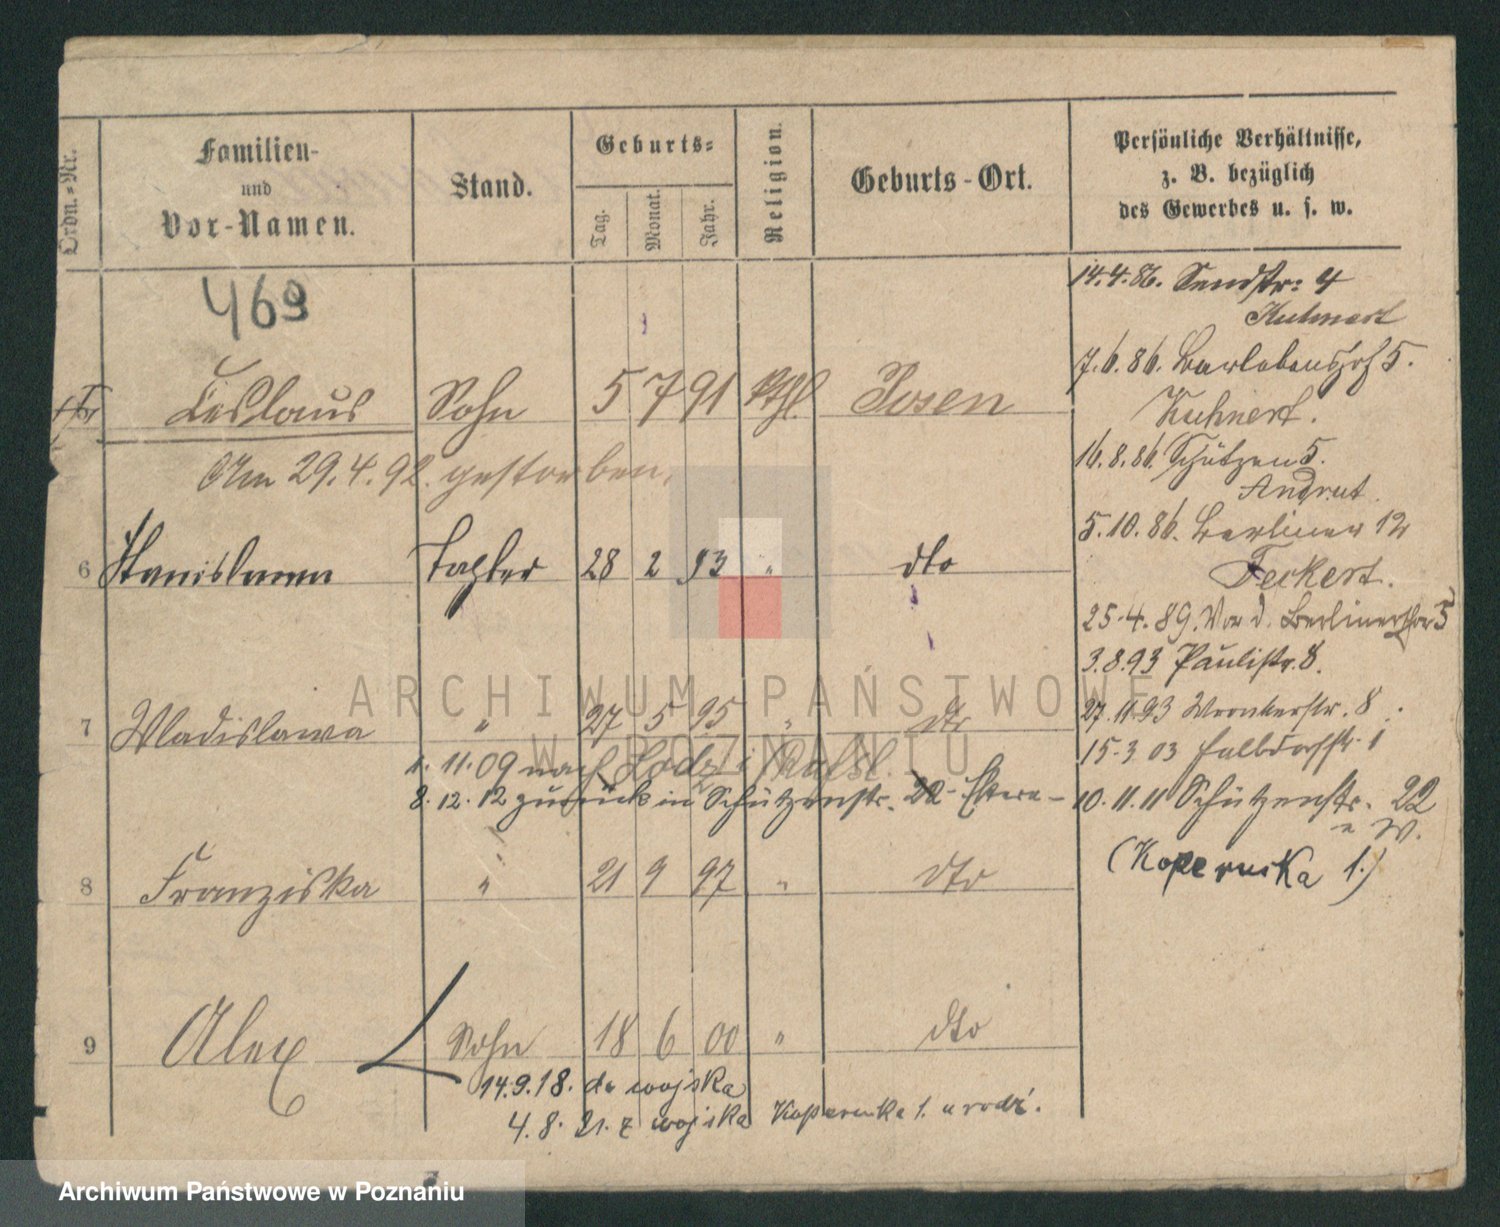 Ordn.=Nr.
Familien-
und
Vor-Namen.
Stand.
Geburts=
Tag.
Monat.
Jahr.
Religion.
Geburts-Ort.
Persönliche Verhältnisse,
z. B. bezüglich
des Gewerbes u. s. w.
469
14.4.86. Sandstr: 4
Kuhnert
7.6.86. Barlebenshof 5.
Kuhnert.
Ceslaus Sohn 5 7 91 Kthl Posen
Am 29.4.92. gestorben.
16.8.86. Schützen 5.
Andrut.
5.10.86. Berliner 12
Feckert.
6 Stanislawa Tochter 28 2 93 " dto
25.4.89. Vor d. Berlinerthor 5
3.8.93 Paulistr. 8.
7 Wladislawa " 27 5 95 " dto
27.11.93 Wronkerstr. 8.
15.3.03 Halbdorfstr. 1
1.11.09 nach Lodz i/
8.12.12 zurück in Schützenstr. 22 - Eltern -
10.11.11 Schützenstr. 22
(Kopernika 1.)
8 Franziska " 21 9 97 " dto
9 Alex Sohn 18 6 00 " dto
14.9.18. do wojska
4.8.21. z wojska Kopernika 1. u rodz.
ARCHIWUM PAŃSTWOWE
W POZNANIU
Archiwum Państwowe w Poznaniu